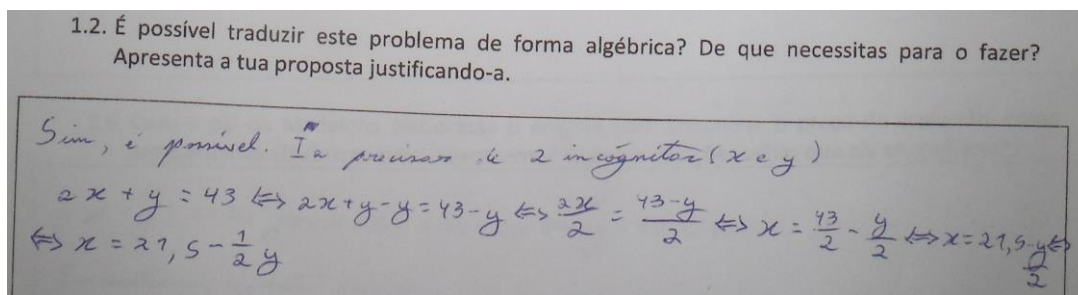 1.2. É possível traduzir este problema de forma algébrica? De que necessitas para o fazer?
Apresenta a tua proposta justificando-a.
Sim, é possível. Ia precisar de 2 incógnitas (x e y)
2x + y = 43 <=> 2x+y-y = 43-y <=> 2x/2 = 43-y/2 <=> x = 43/2 - y/2 <=> x = 21,5-y/2 <=>
<=> x = 21,5 - 1/2 y